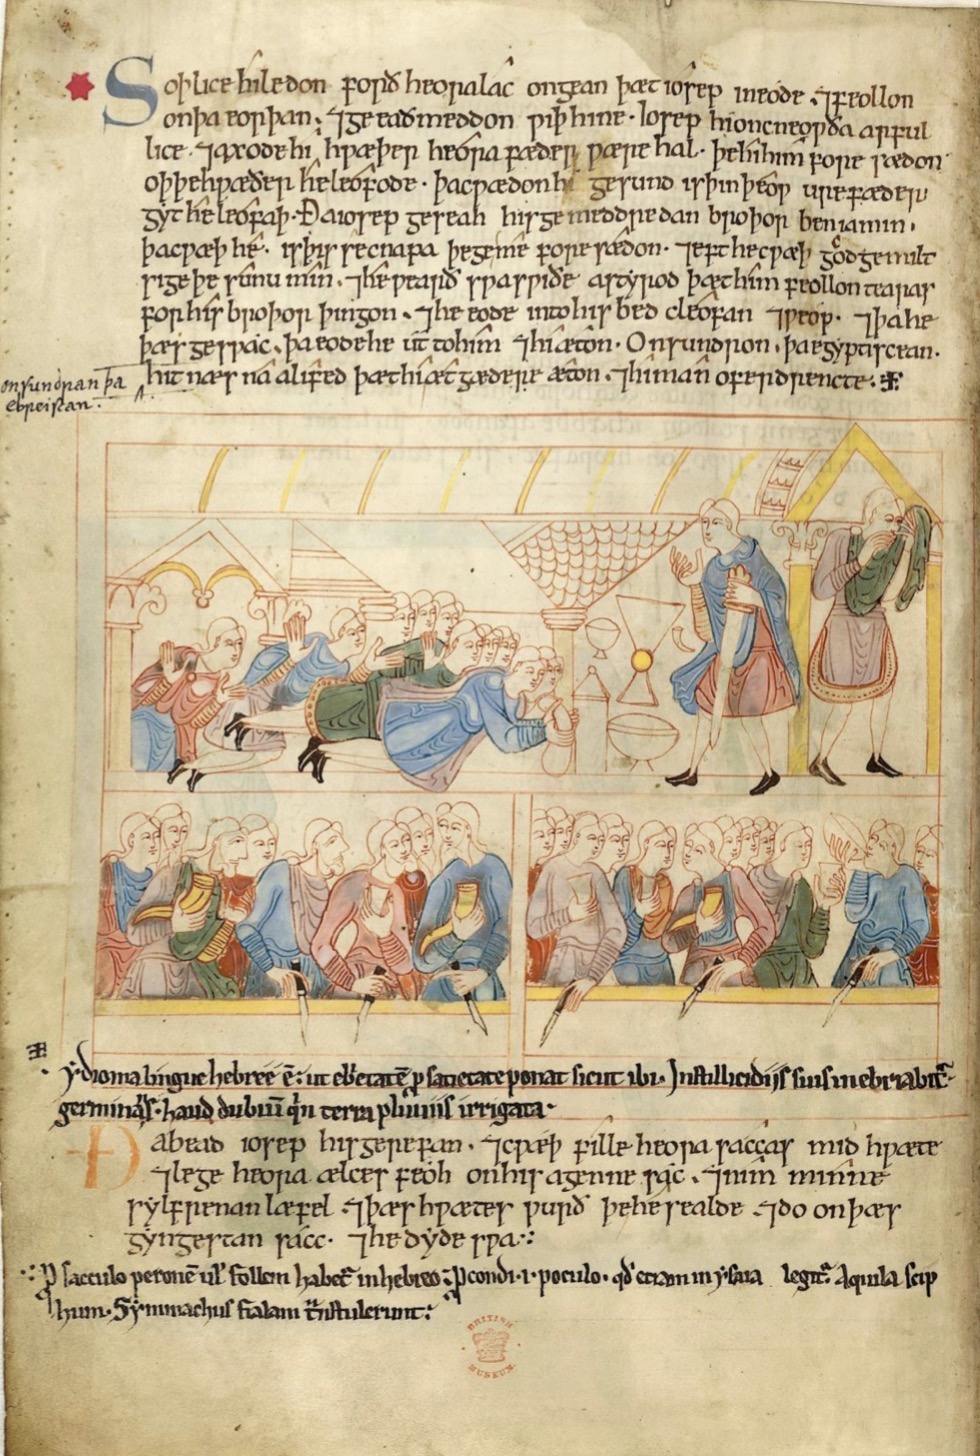 Soþlice hi le don forð heora lac ongean þæt iosep ineode ⁊ feollon
on þa eorþan; ⁊ ge eaðmeddon wiþ hine. Iosep hi oncneowþa arful
lice ⁊ axode hi hwæþer heora fæder wære hal. þe hi him fore sædon
oþþe hwæðer he leofode. þa cwædon hi gesund is þin þeow ure fæder
gyt he leofaþ. Ða iosep geseah his gemeddredan broþor beniamin.
þa cwæþ he. is þis se cnapa þe ge me fore sædon. ⁊ eft he cwæþ god gemilt
sige þe sunu min. ⁊ he wearð swa swiðe astyrod þæt him feollon tearas
for his broþor þingon. ⁊ he eode into his bed cleofan ⁊ weop. ⁊ þa he
þæs geswac. þa eode he ut to him ⁊ hi æton. On sundron. þa egyptiscean.
onsundran þa
ebreiscan.
hit næs na alifed þæt hi æt gædere æton. ⁊ him an ofer drencte.
ydioma lingue hebree ē. ut eb'etatē p satietate ponat sicut ibi. In stillicidiis suis inebriabit'
germinās. haud dubiū q'n terra pluuiis irrigata.
Ða bead iosep his gerefan. ⁊ cwæþ fille heora saccas mid hwæte
⁊ lege heora ælces feoh on his agenne sac. ⁊ nim minne
sylfrenan læfel ⁊ þæs hwætes wurð þe he sealde ⁊ do on þæs
gyngestan sacc. ⁊ he dyde swa.
P sacculo peronē ul' follem habet' in hebreo. P condi .i. poculo. qd' etiam in ysaia legit'. Aquila scip
hum. Symmachus fialam t'nstulerunt.
BRITISH
MUSEUM